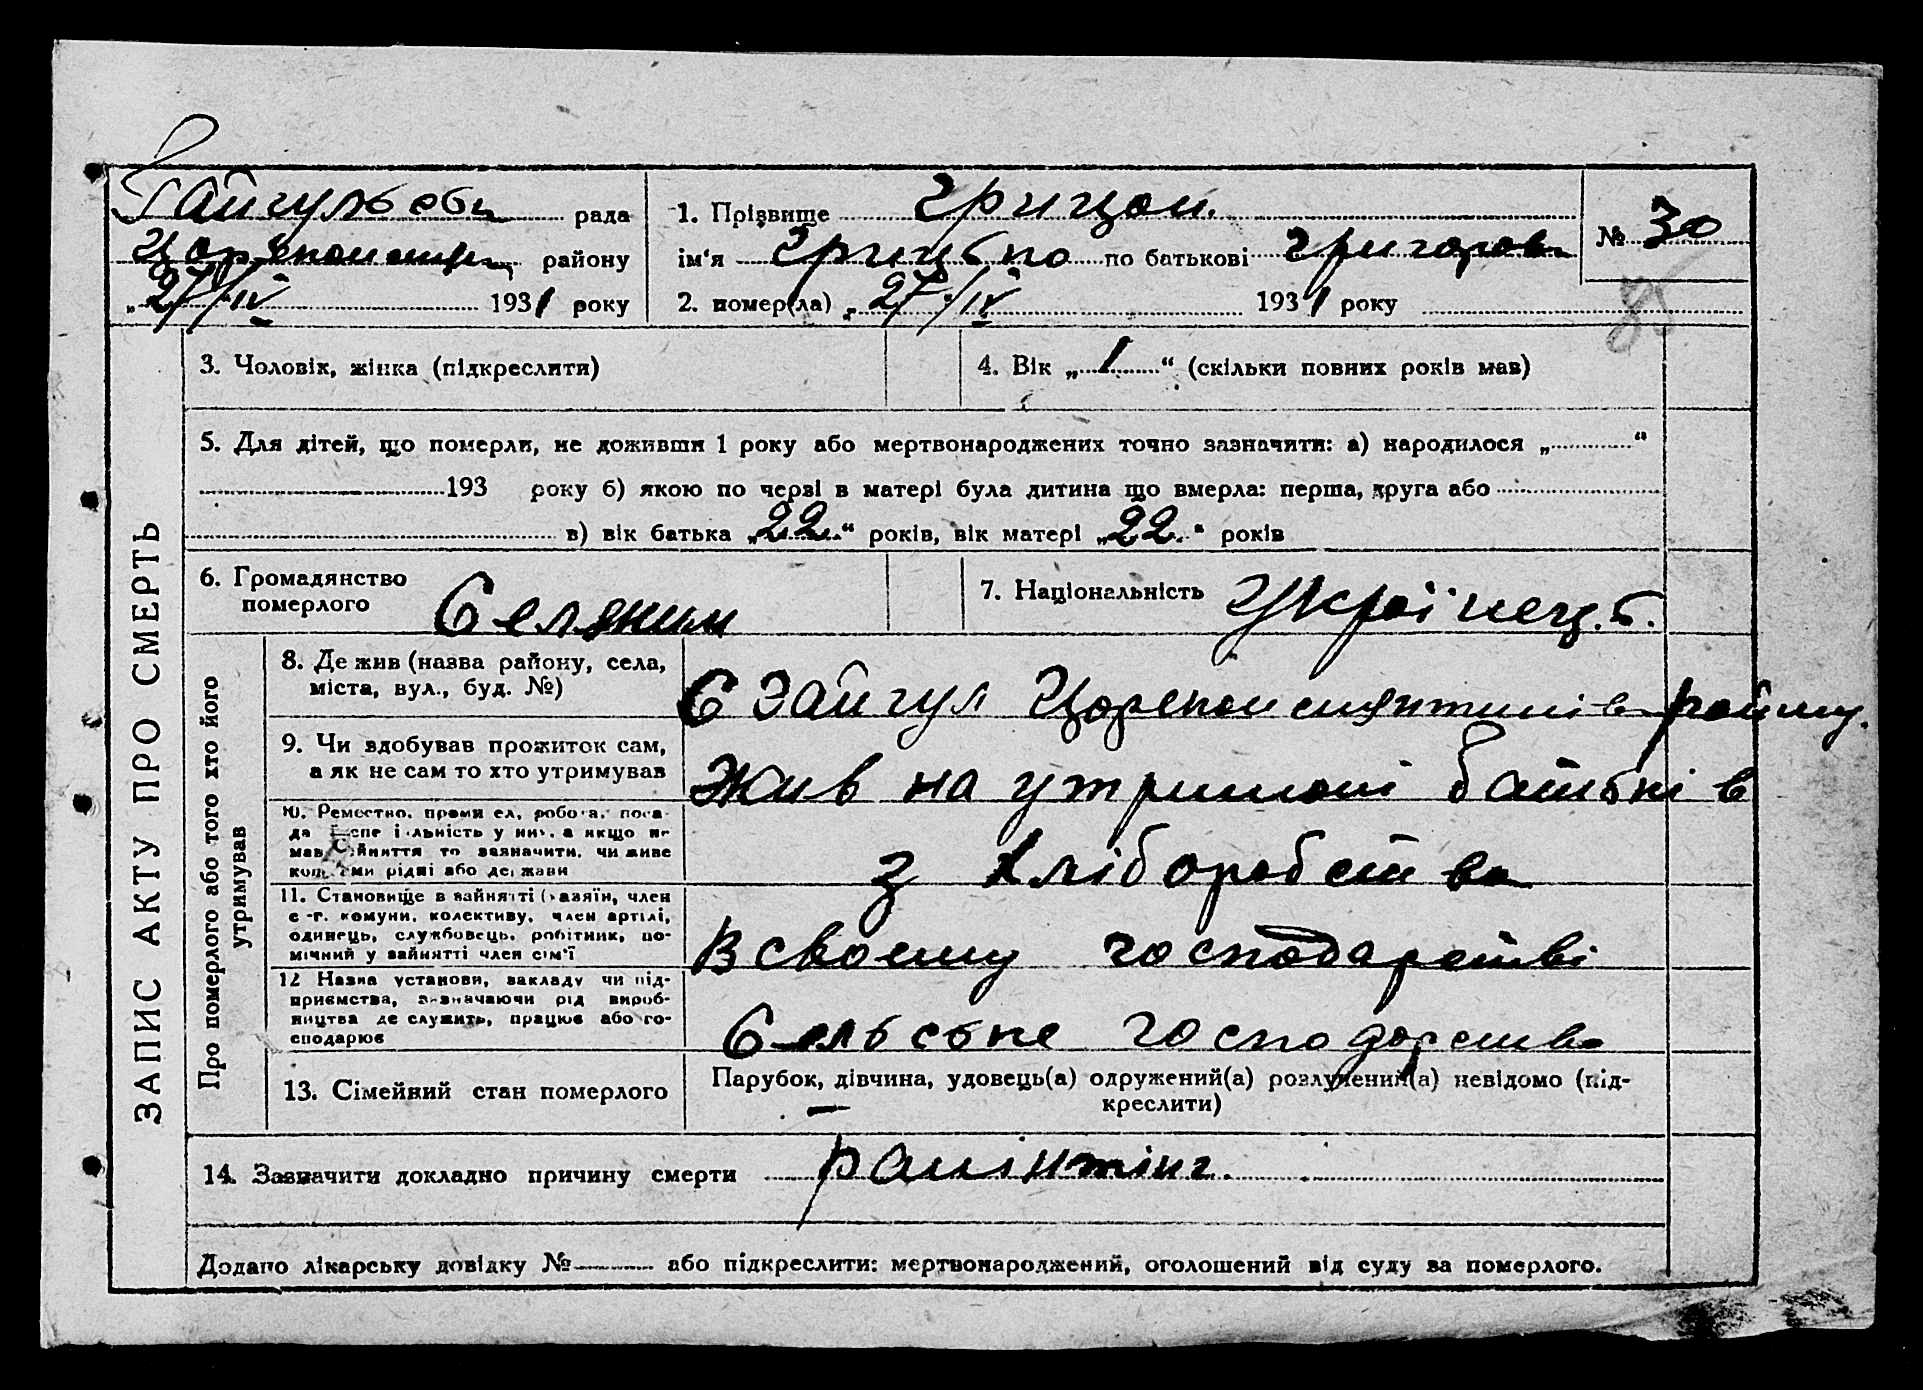 рада
району
„27/IV 1931 року
1. Прізвище Грицай.
ім'я Грицько по батькові Григоров
2. помер(ла) „27/IV 1931 року
№ 30
3. Чоловік, жінка (підкреслити)
4. Вік „1“ (скільки повних років мав)
5. Для дітей, що померли, не доживши 1 року або мертвонароджених точно зазначити: а) народилося „ “
193 року б) якою по черзі в матері була дитина що вмерла: перша, друга або
в) вік батька „22“ років, вік матері „22“ років
6. Громадянство
померлого Селянин
7. Національність Українец.
ЗАПИС АКТУ ПРО СМЕРТЬ
Про померлого або того хто його
утримував
8. Де жив (назва району, села,
міста, вул., буд. №)
С Зайгул району.
9. Чи здобував прожиток сам,
а як не сам то хто утримував
Жив на утримані батьків
10. Ремество, промисел, робота, поса-
да спеціяльність у них, а якщо не
мав зайняття то зазначити, чи живе
коштами рідні або держави
з хліборобства
11. Становище в зайнятті (хазяїн, член
с.-г. комуни, колективу, член артілі,
одинець, службовець, робітник, по-
мічний у зайнятті член сім'ї
В своему господарстві
12 Назва установи, закладу чи під-
приємства, зазначаючи рід вироб-
ництва де служить, працює або го-
сподарює
Сельське господарство
13. Сімейний стан померлого
Парубок, дівчина, удовець(а) одружений(а) розлучений(а) невідомо (під-
креслити)
14. Зазначити докладно причину смерти
Додано лікарську довідку № або підкреслити: мертвонароджений, оголошений від суду за померлого.